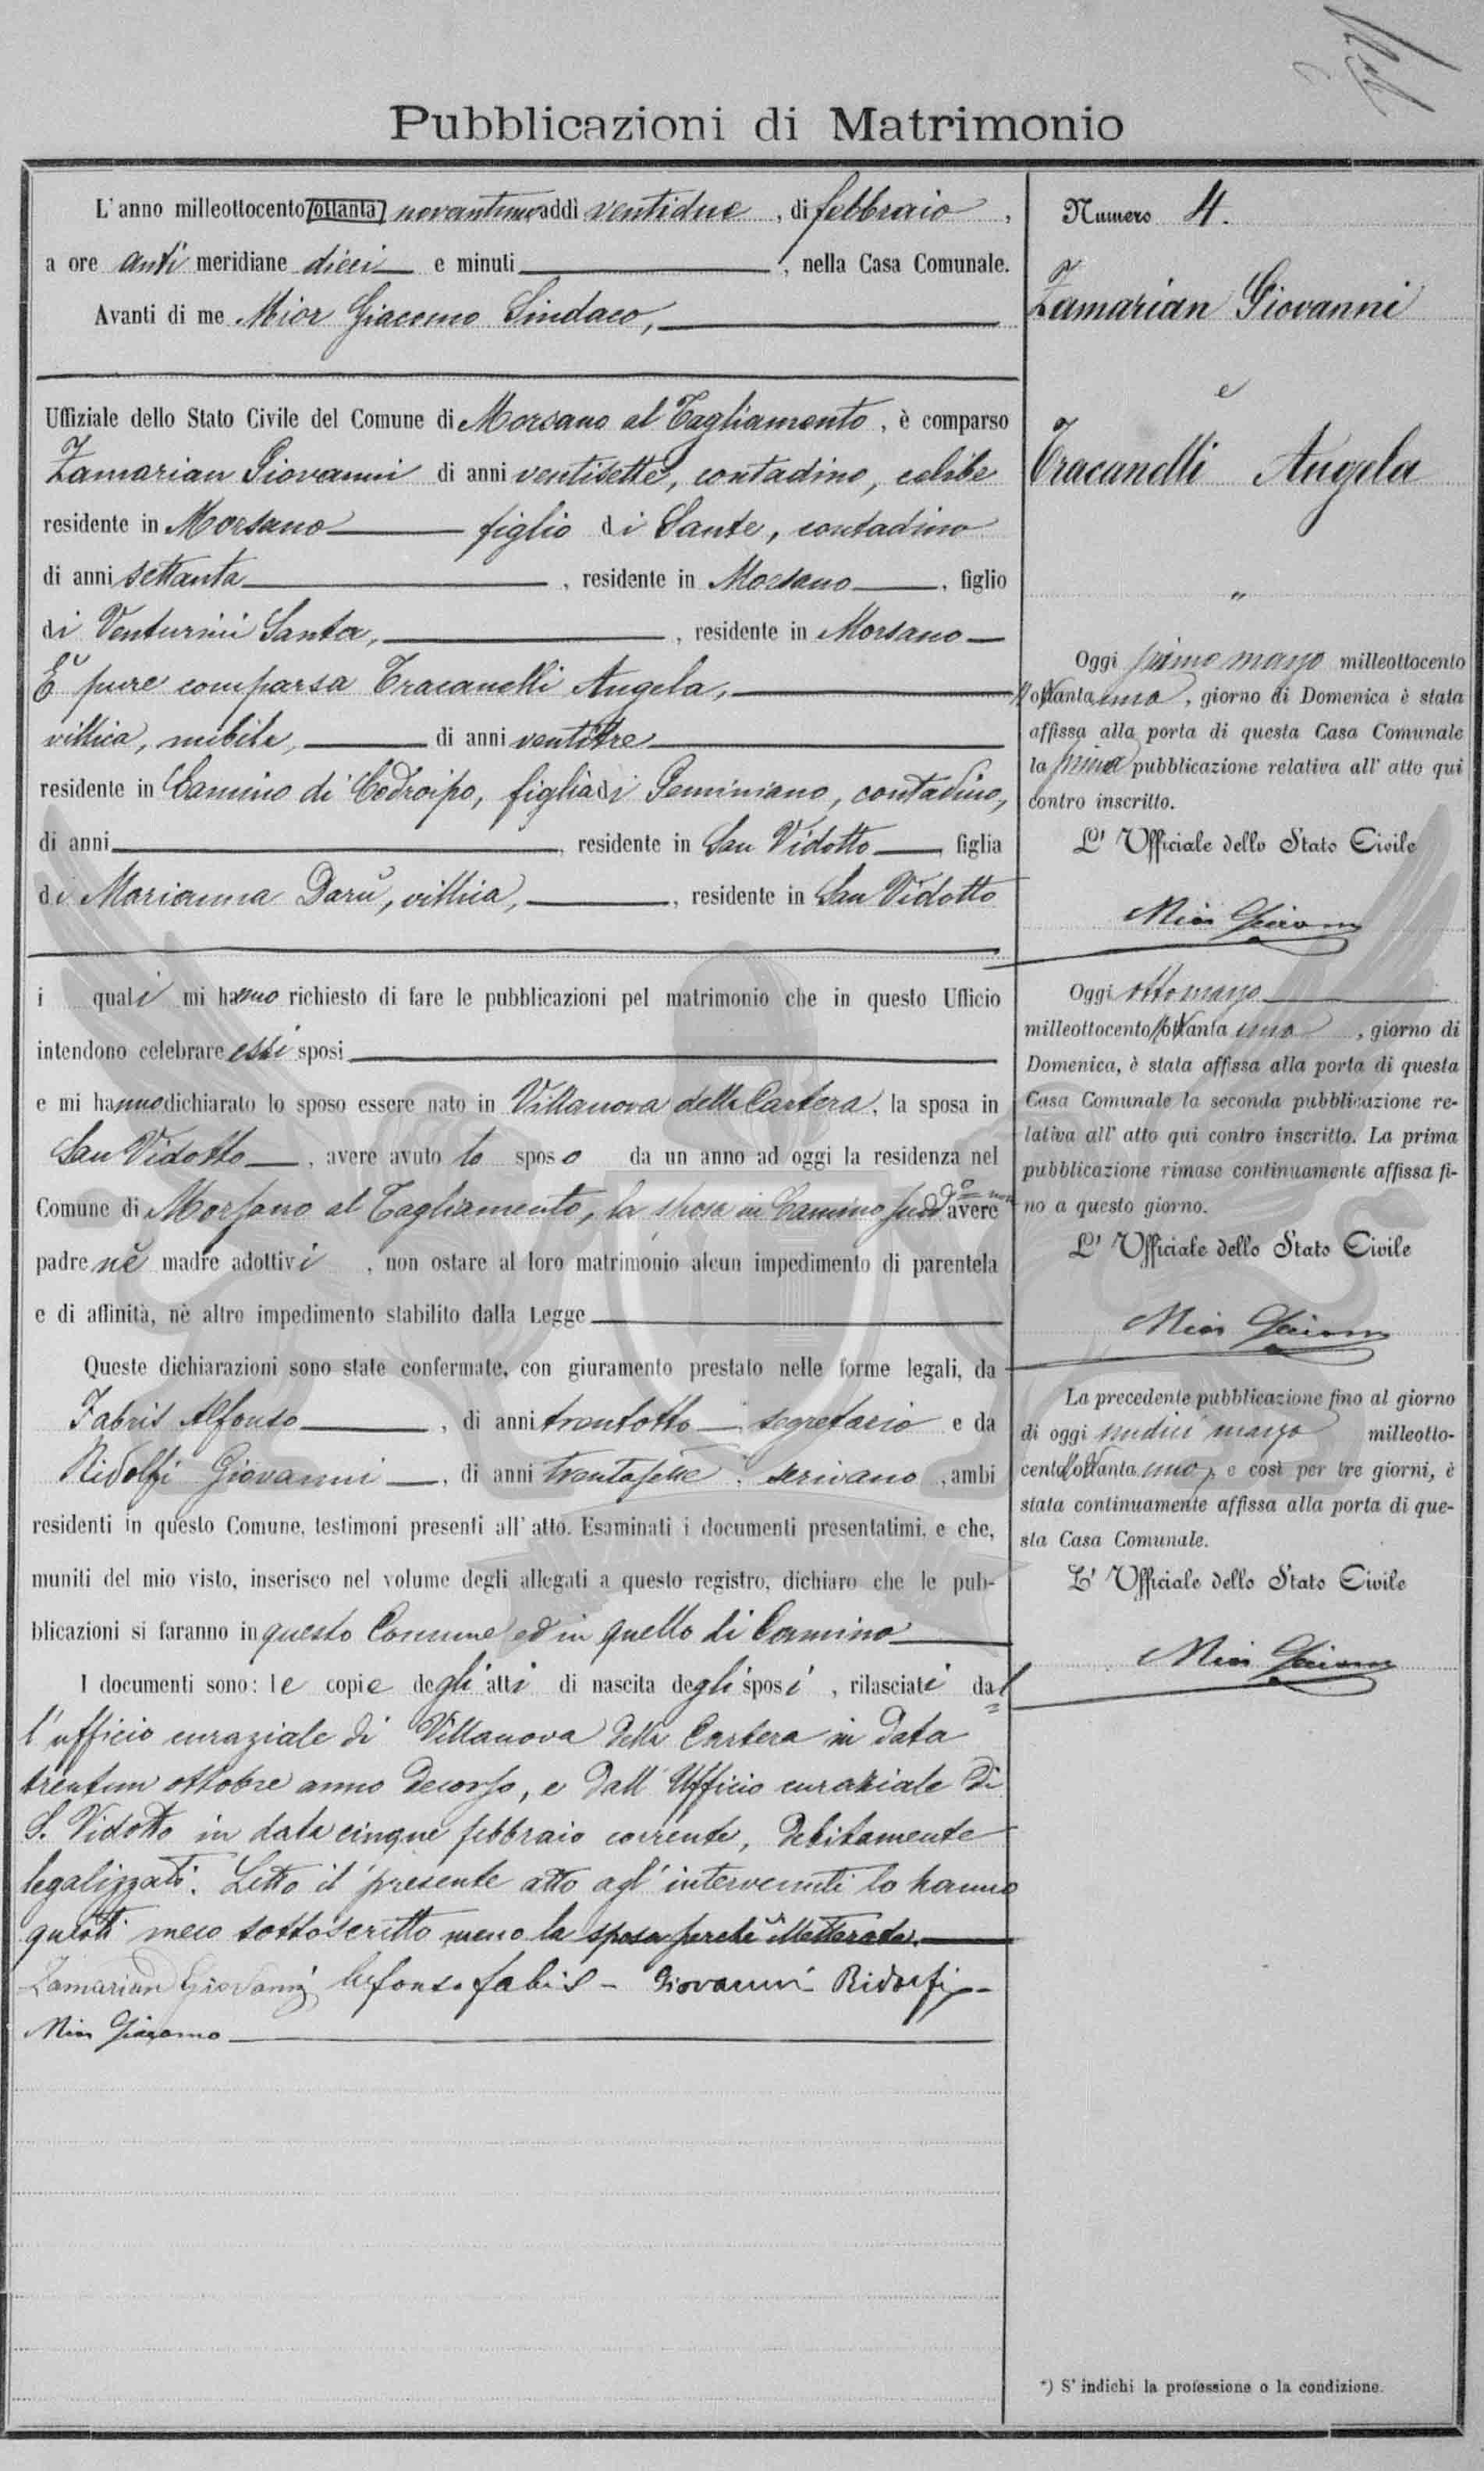 Pubblicazioni di Matrimonio
L'anno milleottocento ottanta novantuno addì ventidue, di febbraio,
a ore anti meridiane dieci e minuti , nella Casa Comunale.
Avanti di me Mior Giacomo Sindaco,
Uffiziale dello Stato Civile del Comune di Morsano al Tagliamento, è comparso
Zamarian Giovanni di anni ventisette, contadino, celibe
residente in Morsano figlio di Sante, contadino
di anni settanta , residente in Morsano , figlio
di Venturini Santa, , residente in Morsano
È pure comparsa Tracanelli Angela,
villica, nubile, di anni ventitre
residente in Camino di Codroipo, figlia di Geminiano, contadino,
di anni , residente in San Vidotto , figlia
di Marianna Darù, villica, , residente in San Vidotto
i quali mi hanno richiesto di fare le pubblicazioni pel matrimonio che in questo Ufficio
intendono celebrare essi sposi
e mi hanno dichiarato lo sposo essere nato in Villanova della Cartera, la sposa in
San Vidotto , avere avuto lo sposo da un anno ad oggi la residenza nel
Comune di Morsano al Tagliamento, la sposa in Camino non avere
padre nè madre adottivi , non ostare al loro matrimonio alcun impedimento di parentela
e di affinità, nè altro impedimento stabilito dalla Legge
Queste dichiarazioni sono state confermate, con giuramento prestato nelle forme legali, da
Fabris Alfonso , di anni trentotto , segretario e da
Ridolfi Giovanni , di anni trentasette , scrivano , ambi
residenti in questo Comune, testimoni presenti all'atto. Esaminati i documenti presentatimi, e che,
muniti del mio visto, inserisco nel volume degli allegati a questo registro, dichiaro che le pub-
blicazioni si faranno in questo Comune ed in quello di Camino
I documenti sono: le copie degli atti di nascita degli sposi , rilasciati dal
l'ufficio curaziale di Villanova della Cartera in data
trentun ottobre anno decorso, e dall'Ufficio curaziale di
S. Vidotto in data cinque febbraio corrente, debitamente
legalizzati. Letto il presente atto agl'intervenuti lo hanno
questi meco sottoscritto meno la sposa perchè illetterata.
Zamarian Giovanni Alfonso Fabris - Giovanni Ridolfi -
Mior Giacomo
Numero 4.
Zamarian Giovanni
e
Tracanelli Angela
Oggi primo marzo milleottocento
ottanta uno, giorno di Domenica è stata
affissa alla porta di questa Casa Comunale
la prima pubblicazione relativa all'atto qui
contro inscritto.
L'Ufficiale dello Stato Civile
Mior Giacomo
Oggi otto marzo
milleottocento ottanta uno , giorno di
Domenica, è stata affissa alla porta di questa
Casa Comunale la seconda pubblicazione re-
lativa all'atto qui contro inscritto. La prima
pubblicazione rimase continuamente affissa fi-
no a questo giorno.
L'Ufficiale dello Stato Civile
Mior Giacomo
La precedente pubblicazione fino al giorno
di oggi undici marzo milleotto-
cento ottanta uno, e così per tre giorni, è
stata continuamente affissa alla porta di que-
sta Casa Comunale.
L'Ufficiale dello Stato Civile
Mior Giacomo
*) S'indichi la professione o la condizione.